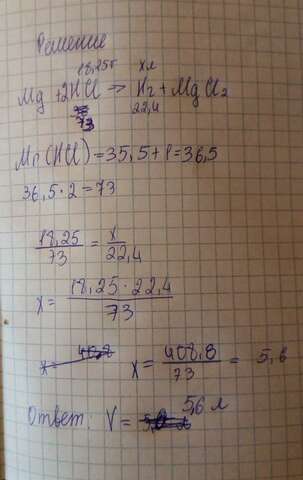 Решение
18,25г x л
Mg + 2HCl => H2 + MgCl2
73 22,4
Mr(HCl) = 35,5 + 1 = 36,5
36,5 · 2 = 73
18,25/73 = x/22,4
x = 18,25 · 22,4/73
x = 408,8/73 = 5,6
Ответ: V = 5,6 л